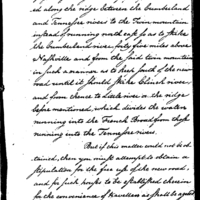 ed along the ridge between the Cumberland
and Tennessee rivers to the Town mountain
instead of running north east so as to strike
the Cumberland river forty five miles above
Nashville and from the said iron mountain
in such a manner as to keep south of the new
road until it should strike Clinch river
and from thence to Little river or the ridge
before mentioned, which divides the waters
running into the French Broad from those
running into the Tennessee river.
But if this matter could not be ob
tained, then you must attempt to obtain a
stipulation for the free use of the new road,
and for such houses to be established thereon
for the convenience of travellers as shall be agreed